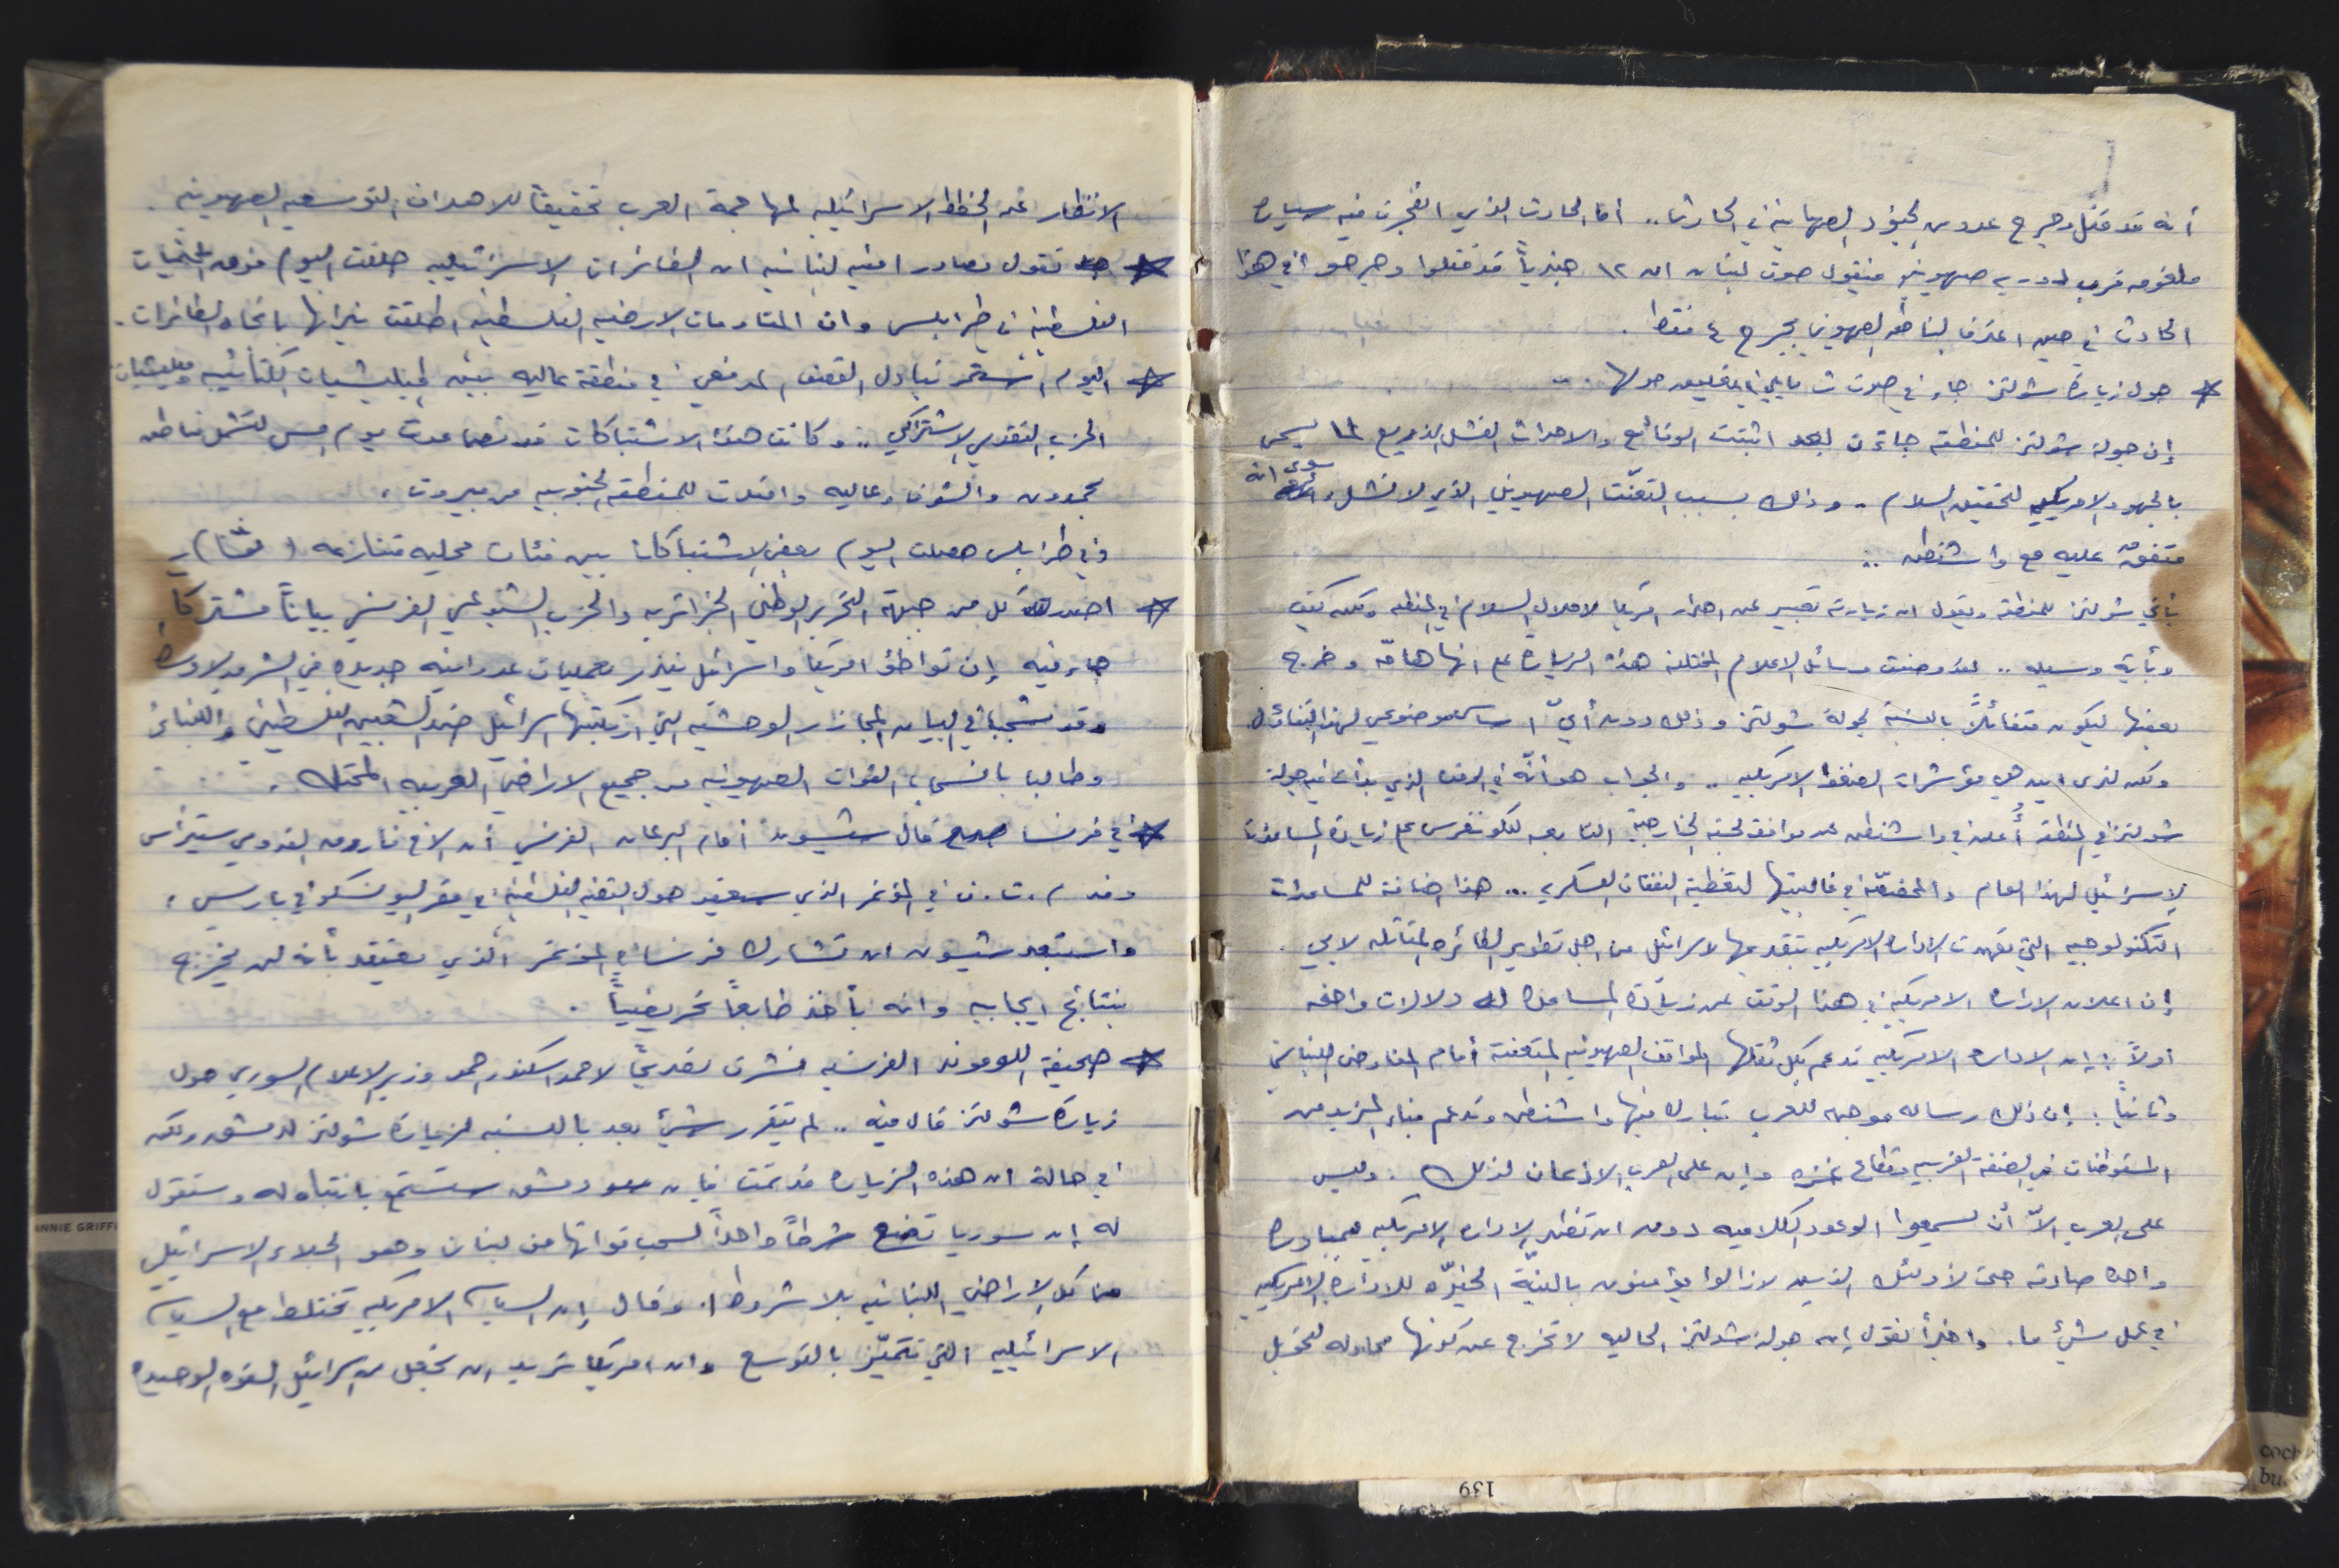 أنه قد قتل وجرح عدد من الجنود الصهاينة في الحادث .. أما الحادث الذي انفجرت فيه سيارة
ملغومه قرب دوريه صهيونيه فيقول صوت لبنان ان ١٢ جندياً قد قتلوا وجرحوا في هذا
الحادث في حين اعترف الناطق الصهيوني بجرح ٤ فقط .
* حول زيارة شولتز جاء في صوت ف مايلي في التعليق حولها ..
إن جولة شولتز للمنطقه جاءت لبعد اثبتت الوقائع والاحداث الفشل الذريع لما يسمى
بالجهود الامريكيه لتحقيق السلام .. وذلك بسبب التعنّت الصهيوني الذي لا نشك سوى انه
متفق عليه مع واشنطن ..
يأتي شولتز للمنطقه ويقول ان زيارته تعبير عن اصرار امريكا لاحلال السلام في المنطقه ولكن كيف
وبأية وسيله .. لقد وصفت وسائل الاعلام المختلفه هذه الزيارة على انها هامّه وخرج
بعضها ليكون متفائلاً بالنسبة لجولة شولتز وذلك دون أيّ اساس موضوعي لهذا التفاؤل
ولكن لنرى اين هي مؤشرات الضغط الامريكيه .. والجواب هو أنّه في الوقت الذي بدأت فيه جولة
شولتز في المنطقه أُعلن في واشنطن عن موافقة لجنه الخارجية التابعه للكونغرس على زيادة المساعدات
لاسرائيل لهذا العام والمخصّصه في غالبيتها لتغطية النفقات العسكريه ... هذا اضافة للمساعدات
التكنولوجيه التي تعهدت الاداره الامريكيه بتقديمها لاسرائيل من اجل تطوير الطائره المقاتله لافي .
إن اعلان الاداره الامريكيه في هذا الوقت عن زيادة المساعده له دلالات واضحه
اولاً : إن الاداره الامريكيه تدعم بكل ثقلها المواقف الصهيونيه المتعنته أمام المفاوض اللبناني
وثانياً : إن ذلك رساله موجهه للعرب تبارك فيها واشنطن وتدعم بناء المزيد من
المستوطنات في الضفة الغربيه وقطاع غزه وإن على العرب الاذعان لذلك . وليس
على العرب الاّ أن يسمعوا الوعود الكلاميه دون ان تظهر الاداره الامريكيه مبادره
واحده صادقه حتى لاولئك الذين لازالوا يؤمنون بالنيّة الخيّره للادارة الامريكيه
في عمل شيءٍ ما . واخيراً نقول إن جولة شولتز الحاليه لا تخرج عن كونها محاوله لتحويل
الانظار عن الخطط الاسرائيليه لمهاجمة العرب تحقيقاً للاهداف التوسعيه الصهيونيه .
* تقول مصادر امنيه لبنانيه ان الطائرات الاسرائيليه حلقت اليوم فوق المخيمات
الفلسطينيه في طرابلس وان المقاومات الارضيه الفلسطينيه اطلقت نيرانها باتجاه الطائرات .
* اليوم استمر تبادل القصف المدفعي في منطقة عاليه بين الميليشيات الكتائبيه وميليشيات
الحزب التقدمي الاشتراكي .. وكانت هذه الاشتباكات قد تصاعدت يوم امس لتشمل مناطق
بحمدون والشوف وعاليه وامتدت للمنطقه الجنوبيه من بيروت .
وفي طرابلس حصلت اليوم بعض الاشتباكات بين فئات محليه متنازعه
* اصدر كل من جبهة التحرير الوطني الجزائريه والحزب الشيوعي الفرنسي بياناً مشتركاً
جاء فيه إن تواطؤ امريكا واسرائيل ينذر بعمليات عدوانيه جديده في الشرق الاوسط
وقد شجبا في البيان المجازر الوحشيه التي ارتكبتها اسرائيل ضد الشعبين الفلسطيني واللبناني
وطالبا بانسحاب القوات الصهيونيه من جميع الاراضي العربيه المحتله .
* في فرنسا قال شيسون أمام البرلمان الفرنسي أن الاخ فاروق القدومي سيترأس
وفد م.ت.ف في المؤتمر الذي سيعقد حول القضيه الفلسطينيه في مقر اليونسكو في باريس .
واستبعد شيسون ان تشارك فرنسا في المؤتمر الذي يعتقد بأنه لن يخرج
بنتائج ايجابيه وانه يأخذ طابعاً تحريضياً .
* صحيفة اللوموند الفرنسيه نشرت تصريحاً لاحمد اسكندر احمد وزير الاعلام السوري حول
زيارة شولتز قال فيه .. لم يتقرر شيءٌ بعد بالنسبه لزيارة شولتز لدمشق ولكن
في حالة ان هذه الزياره قد تمّت فإن دمشق ستستمع بانتباه له وستقول
له إن سوريا تضع شرطاً واحداً لسحب قواتها من لبنان وهو الجلاء الاسرائيلي
من كل الاراضي اللبنانيه بلا شروط . وقال إن السياسه الامريكيه تختلط مع السياسه
الاسرائيليه التي تتميّز بالتوسع وان امريكا تريد ان تجعل من اسرائيل القوه الوحيده
139
ANNIE GRIFFI